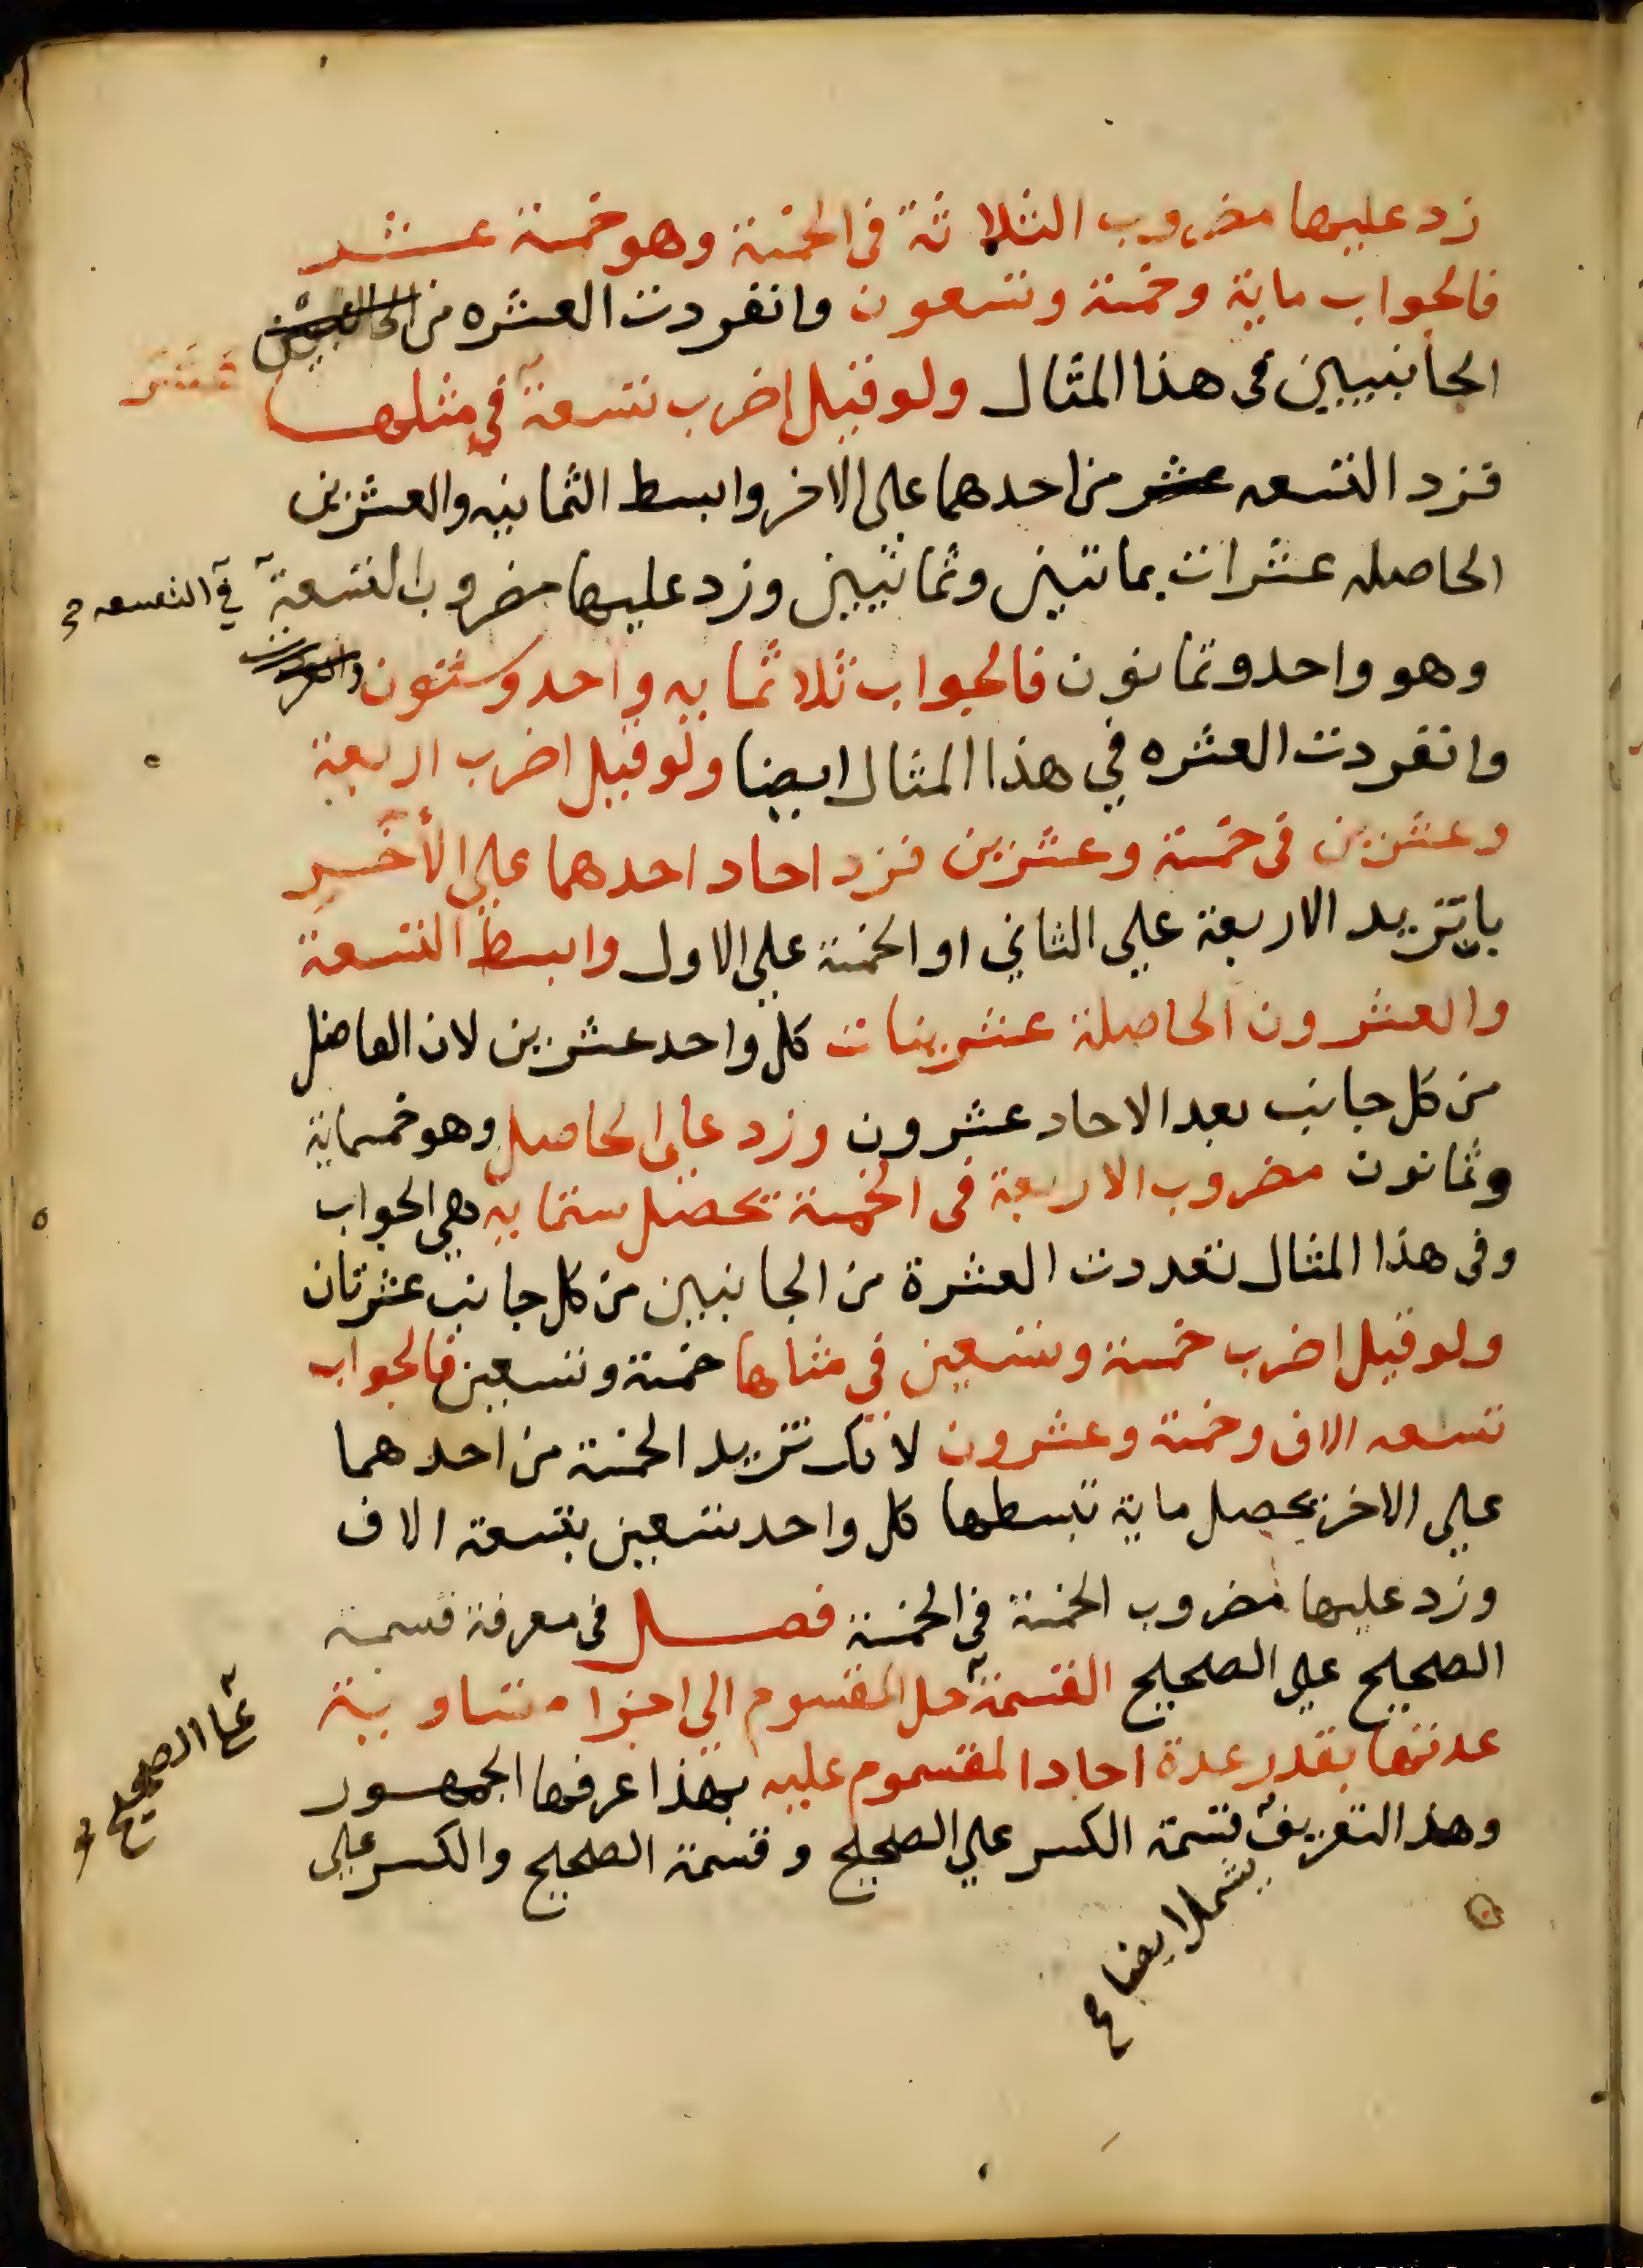 زد عليها مضروب الثلاثة في الخمسة وهو خمسة عشر
فالجواب ماية وخمسة وتسعون وانفردت العشره من
الجانبين في هذا المثال ولو قيل اضرب تسعة في مثلها
عشر
فزد التسعه عشر من احدهما على الاخر وابسط الثمانيه والعشرين
الحاصله عشرات بماتين وثمانين وزد عليها مضروب التسعة
في التسعه صح
وهو واحد وثمانون فالجواب ثلاثمايه واحد وستون
وانفردت العشره في هذا المثال ايضا ولو قيل اضرب اربعة
وعشرين في خمسة وعشرين فزد احاد احدهما علي الأخر
بان تزيد الاربعة علي الثاني او الخمسة علي الاول وابسط التسعة
والعشرون الحاصلة عشرينات كل واحد عشرين لان الفاضل
من كل جانب بعد الاحاد عشرون وزد علي الحاصل وهو خمسماية
وثمانون مضروب الاربعة في الخمسة تحصل ستمايه هي الجواب
وفي هذا المثال تعددت العشرة من الجانبين من كل جانب عشرتان
ولو قيل اضرب خمسة وتسعين في مثلها خمسة وتسعين فالجواب
تسعه الاف وخمسة وعشرون لانك تزيد الخمسة من احدهما
علي الاخر يحصل ماية تبسطها كل واحد تسعين بتسعة الاف
وزد عليها مضروب الخمسة في الخمسة فصل في معرفة قسمة
الصحيح علي الصحيح القسمة حل المقسوم الي اجزا متساوية
علي الصحيح صح
عدتها بقدر عدة احاد المقسوم عليه بهذا عرفها الجمهور
وهذا التعريف قسمة الكسر علي الصحيح وقسمة الصحيح والكسر علي
يشمل ايضا صح